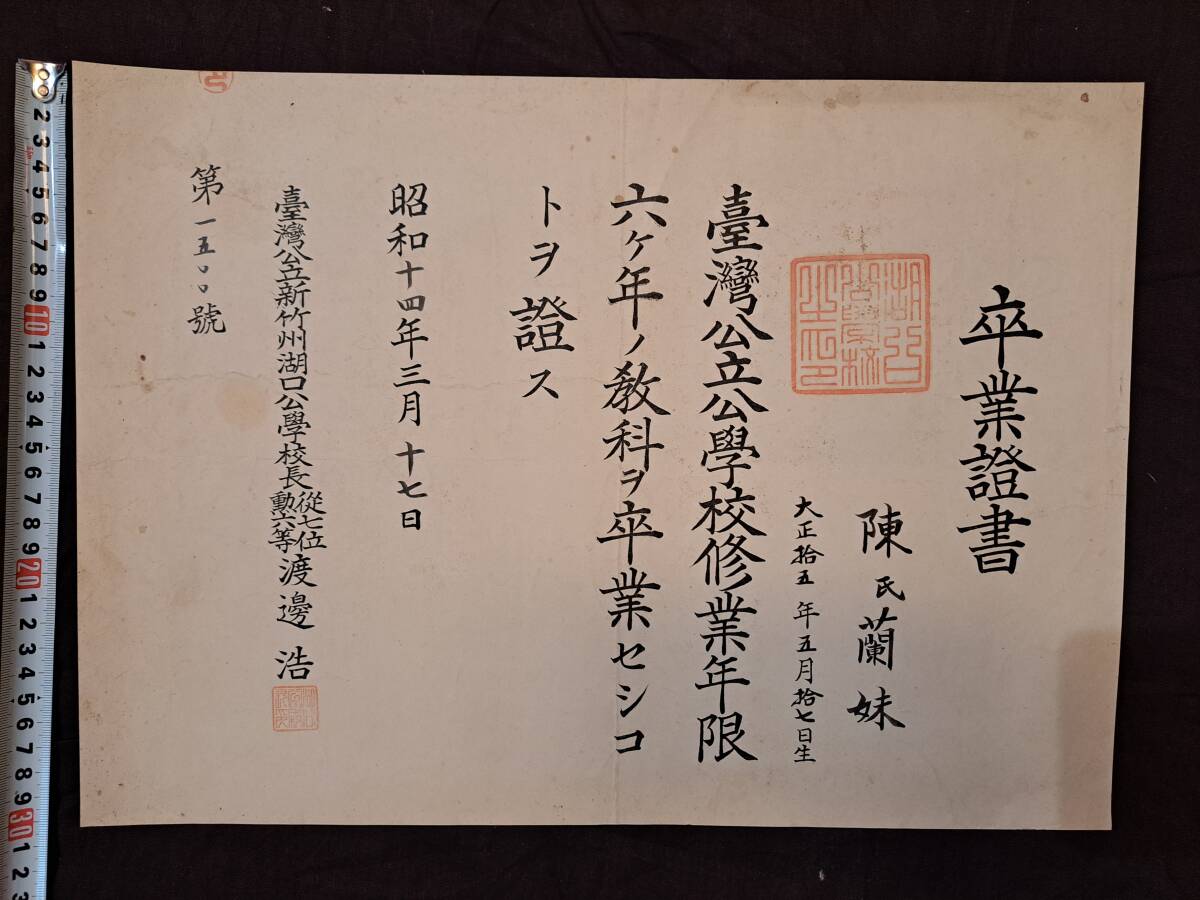 卒業證書
陳氏蘭妹
大正拾五年五月拾七日生
臺灣公立公學校修業年限
六ケ年ノ教科ヲ卒業セシコ
トヲ證ス
昭和十四年三月十七日
臺灣公立新竹州湖口公學校長從七位勳六等渡邊浩
第一五〇〇號
2 3 4 5 6 7 8 9 10 1 2 3 4 5 6 7 8 9 20 1 2 3 4 5 6 7 8 9 30 1 2 3